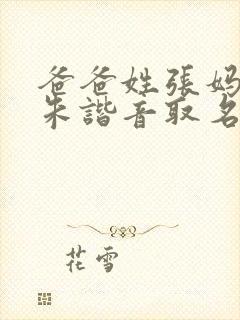 爸爸姓張媽
朱諧音取名
花雪